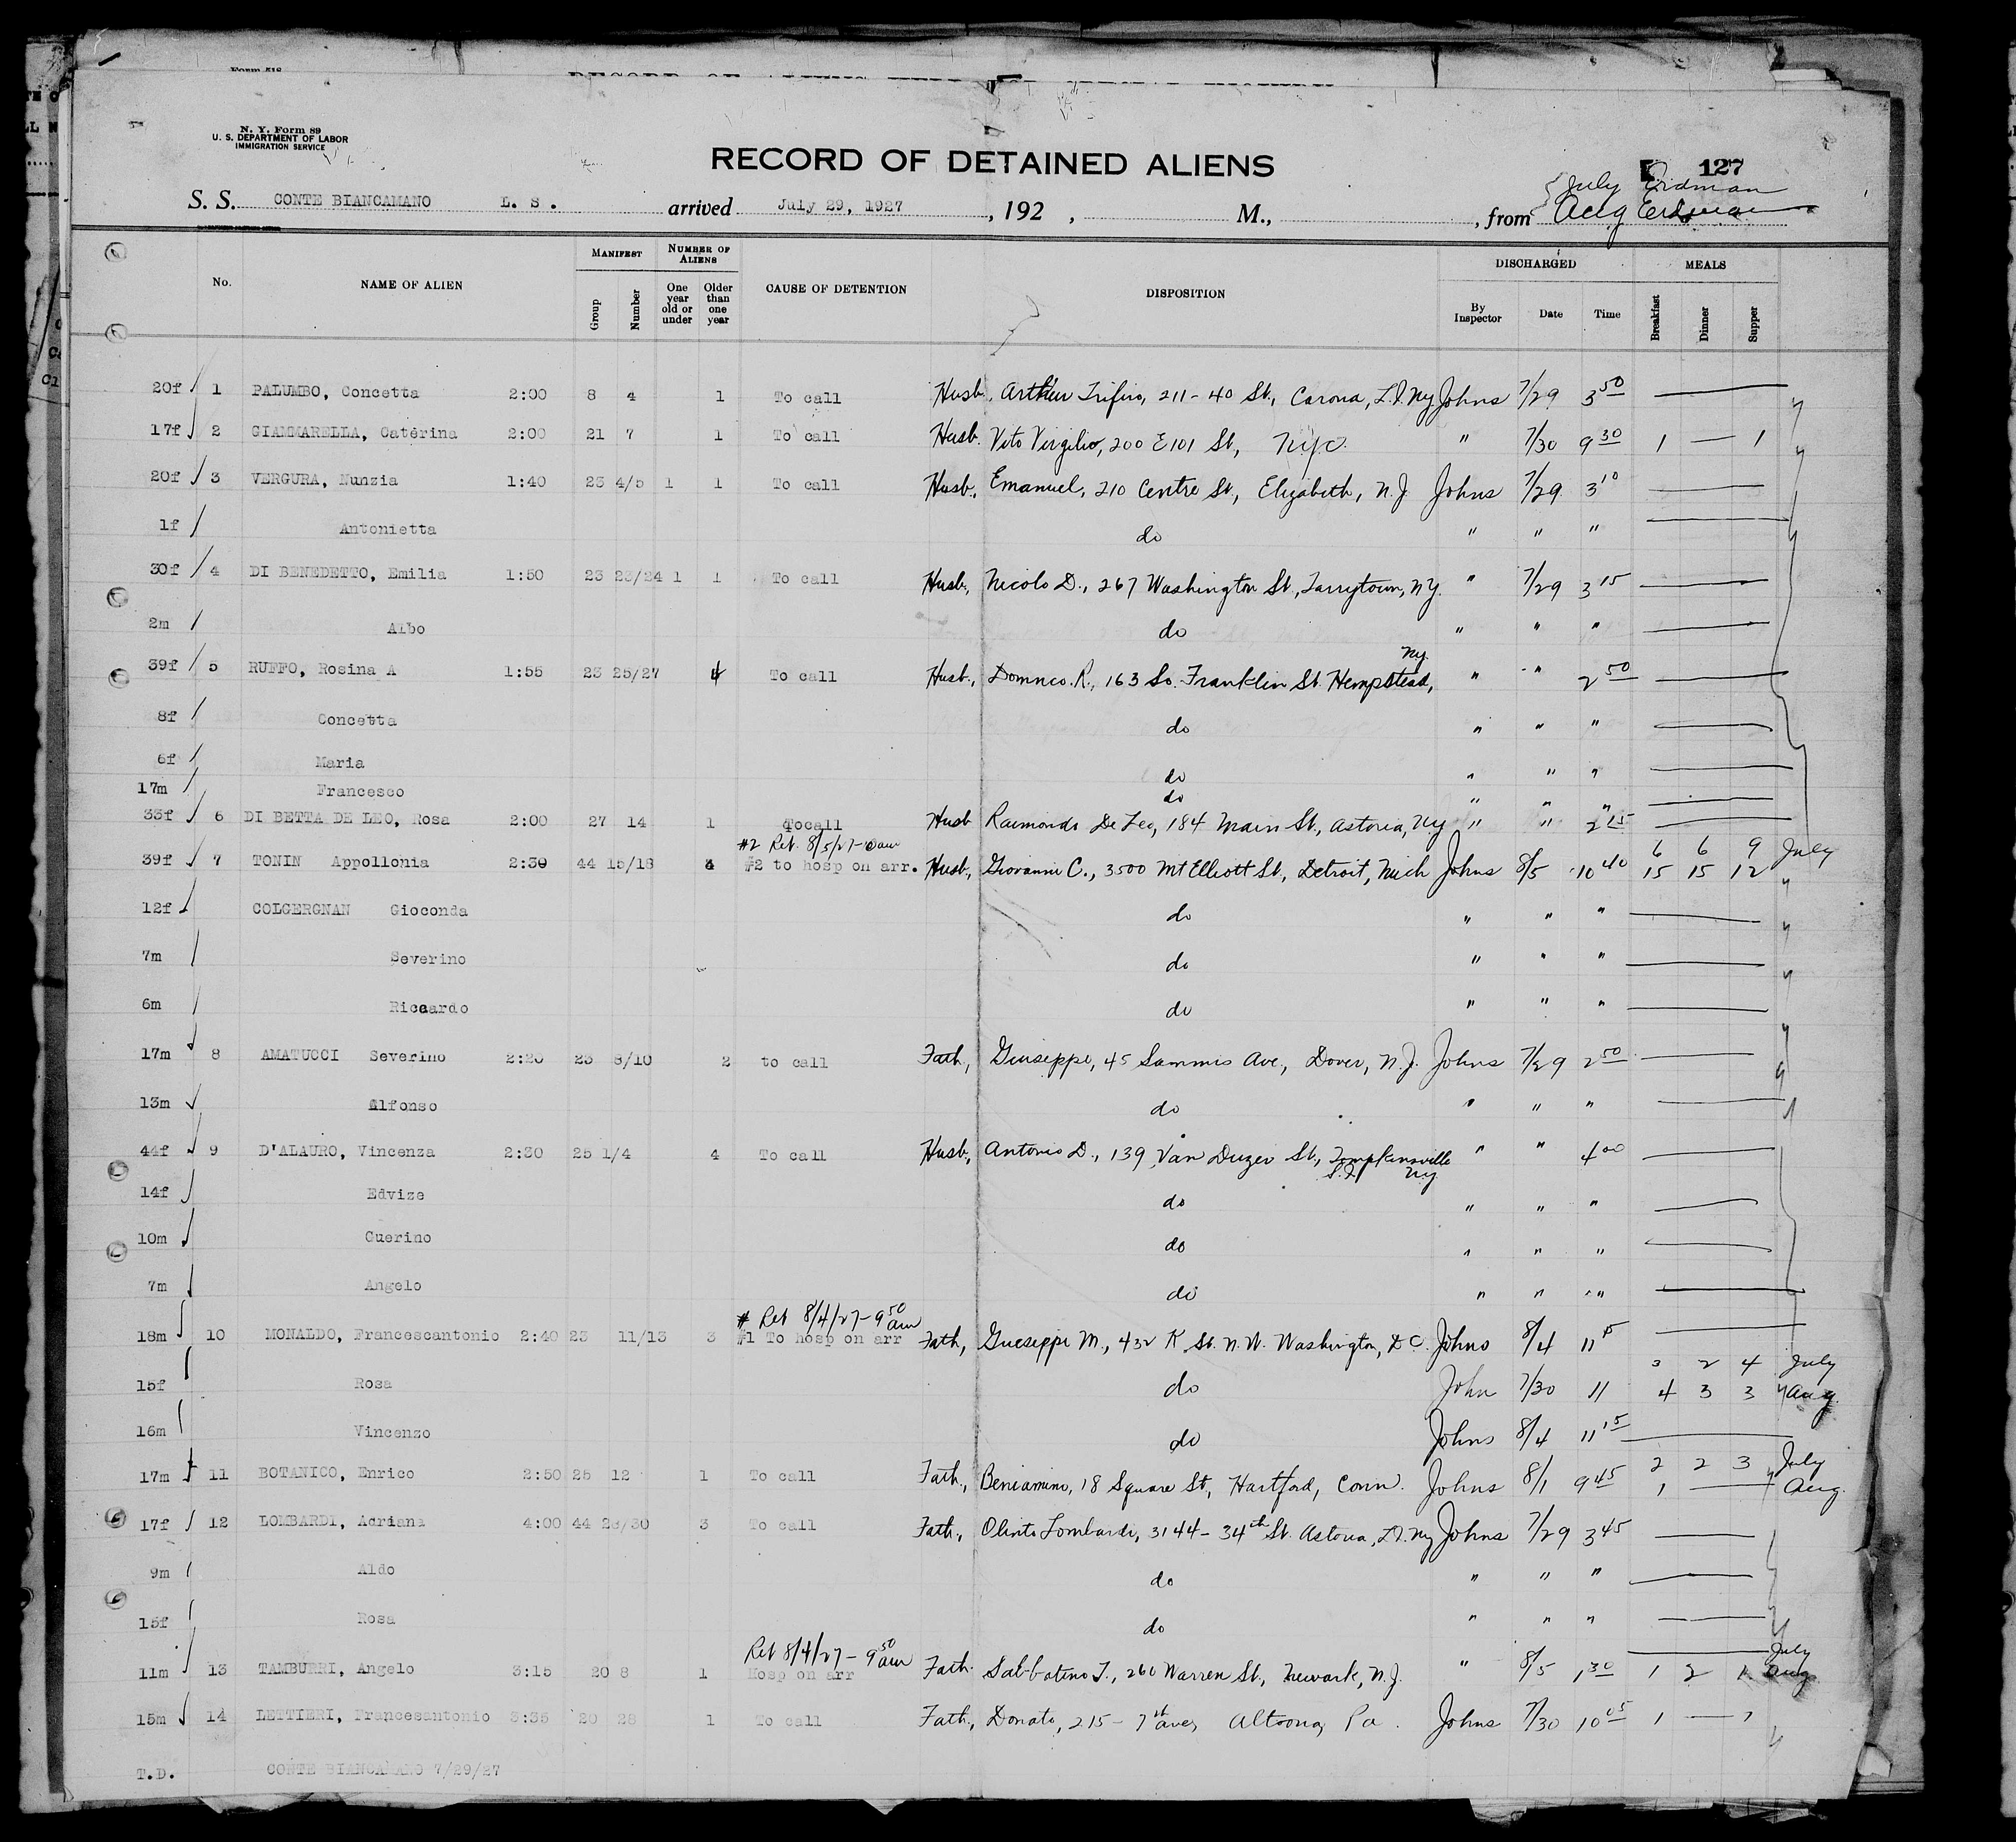 Form 518
N. Y. Form 89
U. S. DEPARTMENT OF LABOR
IMMIGRATION SERVICE
RECORD OF DETAINED ALIENS
127
July Erdman
S. S. CONTE BIANCAMANO L. S. arrived July 29, 1927, 192 , M., , from Aug Erdman
No. NAME OF ALIEN MANIFEST Group Number NUMBER OF ALIENS One year old or under Older than one year CAUSE OF DETENTION DISPOSITION DISCHARGED By Inspector Date Time MEALS Breakfast Dinner Supper
20f 1 PALUMBO, Concetta 2:00 8 4 1 To call Husb, Arthur Trifiro, 211-40 St., Corona, L.I. NY Johns 7/29 3 50
17f 2 GIAMMARELLA, Caterina 2:00 21 7 1 To call Husb. Vito Virgilio, 200 E 101 St, NYC. " 7/30 9 30 1 — 1
20f 3 VERGURA, Nunzia 1:40 23 4/5 1 1 To call Husb, Emanuel, 210 Centre St, Elizabeth, N.J Johns 7/29 3 10
1f Antonietta do " " "
30f 4 DI BENEDETTO, Emilia 1:50 23 23/24 1 1 To call Husb, Nicolo D., 267 Washington St., Tarrytown, NY. " 7/29 3 15
2m Albo do " " "
39f 5 RUFFO, Rosina A 1:55 23 25/27 4 To call Husb., Domnco. R., 163 So. Franklin St. Hempstead, NY. " " 2 50
8f Concetta do " " "
6f Maria do " " "
17m Francesco do " " "
33f 6 DI BETTA DE LEO, Rosa 2:00 27 14 1 To call Husb Raimondo De Leo, 184 Main St., Astoria, NY " " 2 15
#2 Ret. 8/5/27- am 6 6 9 July
39f 7 TONIN Appollonia 2:30 44 15/18 4 #2 to hosp on arr. Husb, Giovanni C., 3500 Mt Elliott St., Detroit, Mich Johns 8/5 10 40 15 15 12 "
12f COLCERGNAN Gioconda do " " "
7m Severino do " " "
6m Riccardo do " " "
17m 8 AMATUCCI Severino 2:20 23 8/10 2 to call Fath, Giuseppe, 45 Sammis Ave, Dover, N.J. Johns 7/29 2 50
13m Alfonso do " " "
44f 9 D'ALAURO, Vincenza 2:30 25 1/4 4 To call Husb, Antonio D., 139 Van Duzer St, Tompkinsville S.I. NY. " " 4 00
14f Edvize do " " "
10m Guerino do " " "
7m Angelo do " " "
# Ret 8/4/27- 9 50 am
18m 10 MONALDO, Francescantonio 2:40 23 11/13 3 #1 To hosp on arr Fath, Gueseppe M., 432 K St. N.W. Washington, D C. Johns 8/4 11 15
3 2 4 July
15f Rosa do John 7/30 11 4 3 3 Aug.
16m Vincenzo do Johns 8/4 11 15
2 2 3 July
17m 11 BOTANICO, Enrico 2:50 25 12 1 To call Fath., Beniamino, 18 Square St, Hartford, Conn. Johns 8/1 9 45 1 — Aug.
17f 12 LOMBARDI, Adriana 4:00 44 28/30 3 To call Fath, Olinto Lombardi, 3144-34th St. Astoria, L.I. NY Johns 7/29 3 45
9m Aldo do " " "
15f Rosa do " " "
Ret 8/4/27- 9 50 am July
11m 13 TAMBURRI, Angelo 3:15 20 8 1 Hosp on arr Fath. Sabbatino T., 260 Warren St, Newark, N.J. " 8/5 1 30 1 2 1 Aug
15m 14 LETTIERI, Francesantonio 3:35 20 28 1 To call Fath, Donato, 215-7th ave, Altoona, Pa. Johns 7/30 10 05 1 — 1
T.D. CONTE BIANCAMANO 7/29/27